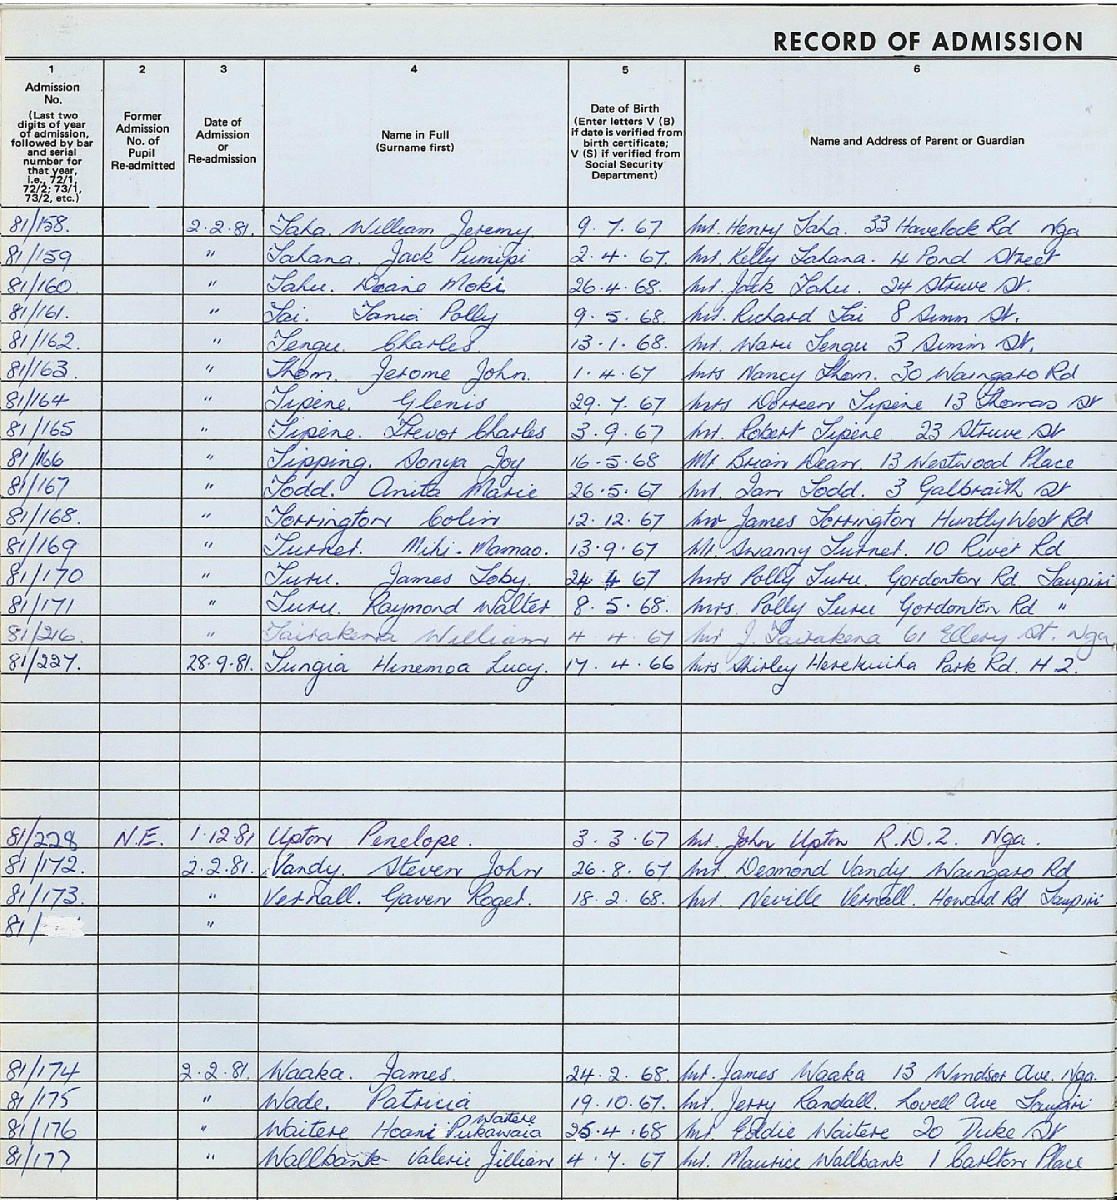 RECORD OF ADMISSION
1 2 3 4 5 6
Admission No. (Last two digits of year of admission, followed by bar and serial number for that year, i.e., 72/1, 72/2; 73/1, 73/2, etc.)
Former Admission No. of Pupil Re-admitted
Date of Admission or Re-admission
Name in Full (Surname first)
Date of Birth (Enter letters V (B) if date is verified from birth certificate; V (S) if verified from Social Security Department)
Name and Address of Parent or Guardian
81/158. 2.2.81. Taha. William Jeremy. 9.7.67 Mr. Henry Taha. 33 Havelock Rd Nga
81/159 " Tahana. Jack Pumipi 2.4.67. Mr. Kelly Tahana. 4 Pond Street
81/160 " Tahu. Deane Moki 26.4.68. Mr. Jack Tahu. 24 Struve St.
81/161. " Tai. Tania Polly 9.5.68. Mr. Richard Tai 8 Simm St.
81/162 " Tengu. Charles 13.1.68. Mr. Waru Tengu 3 Simm St.
81/163 " Thom. Jerome John. 1.4.67 Mrs Nancy Thom. 30 Waingaro Rd
81/164 " Tipene. Glenis 29.7.67 Mrs Dorreen Tipene 13 Thomas St
81/165 " Tipene. Trevor Charles 3.9.67 Mr. Robert Tipene 23 Struve St
81/166 " Tipping. Sonya Joy 16-5.68 Mr Brian Dean. 13 Westwood Place
81/167 " Todd. Anita Marie 26.5.67 Mr. Ian Todd. 3 Galbraith St
81/168. " Torrington Colin 12.12.67 Mr James Torrington Huntly West Rd
81/169 " Turner. Mihi-Mamao. 13.9.67 Mr. Swanny Turner. 10 River Rd
81/170 " Turu. James Toby. 24 4 67 Mrs Polly Turu. Gordonton Rd Taupiri
81/171 " Turu. Raymond Walter 8.5.68. Mrs. Polly Turu Gordonton Rd "
81/216. " Tairakena William 4.4.67 Mr J. Tairakena 61 Ellery St. Nga
81/227. 28.9.81. Tungia Hinemoa Lucy. 17.4.66 Mrs Shirley Herekuiha Park Rd. H 2.
81/228 N.E. 1.12.81 Upton Penelope. 3.3.67 Mr. John Upton R.D.2. Nga.
81/172. 2.2.81. Vandy. Steven John 26.8.67 Mr Desmond Vandy. Waingaro Rd
81/173. " Vernall. Gaven Roger. 18.2.68. Mr. Neville Vernall. Howard Rd Taupiri
81/ "
81/174 2.2.81. Waaka. James. 24.2.68. Mr. James Waaka 13 Windsor Ave. Nga.
81/175 " Wade. Patricia 19.10.67. Mr. Jerry Randall. Lovell Ave Taupiri
Waitere
81/176 " Waitere Hoani Pukawaia 25.4.68 Mr. Eddie Waitere 20 Duke St
81/177 " Wallbank Valerie Jillian 4.7.67 Mr. Maurice Wallbank 1 Carlton Place